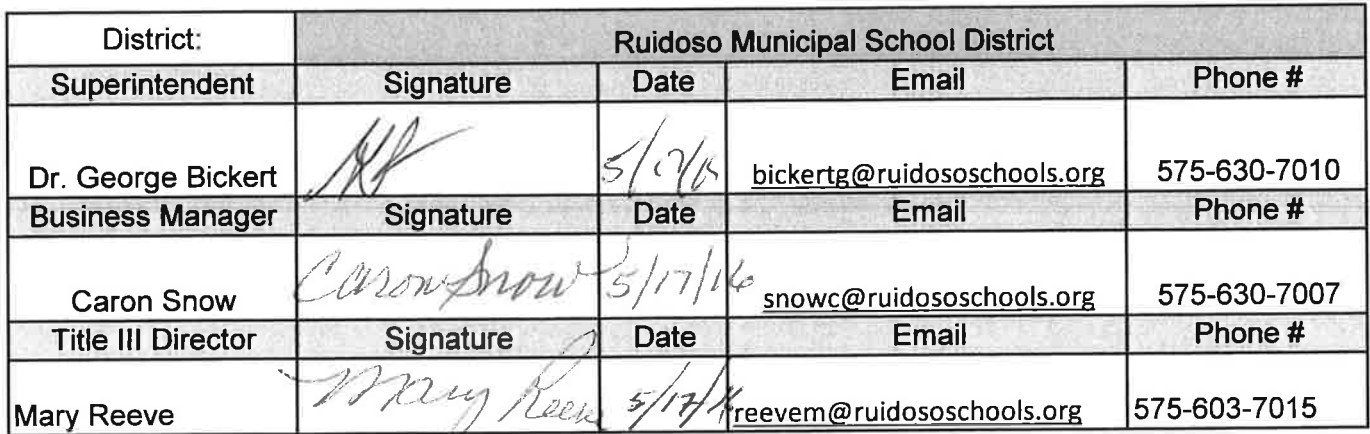 District: Ruidoso Municipal School District
Superintendent Signature Date Email Phone #
Dr. George Bickert 5/17/16 bickertg@ruidososchools.org 575-630-7010
Business Manager Signature Date Email Phone #
Caron Snow Caron Snow 5/17/16 snowc@ruidososchools.org 575-630-7007
Title III Director Signature Date Email Phone #
Mary Reeve Mary Reeve 5/17/16 reevem@ruidososchools.org 575-603-7015